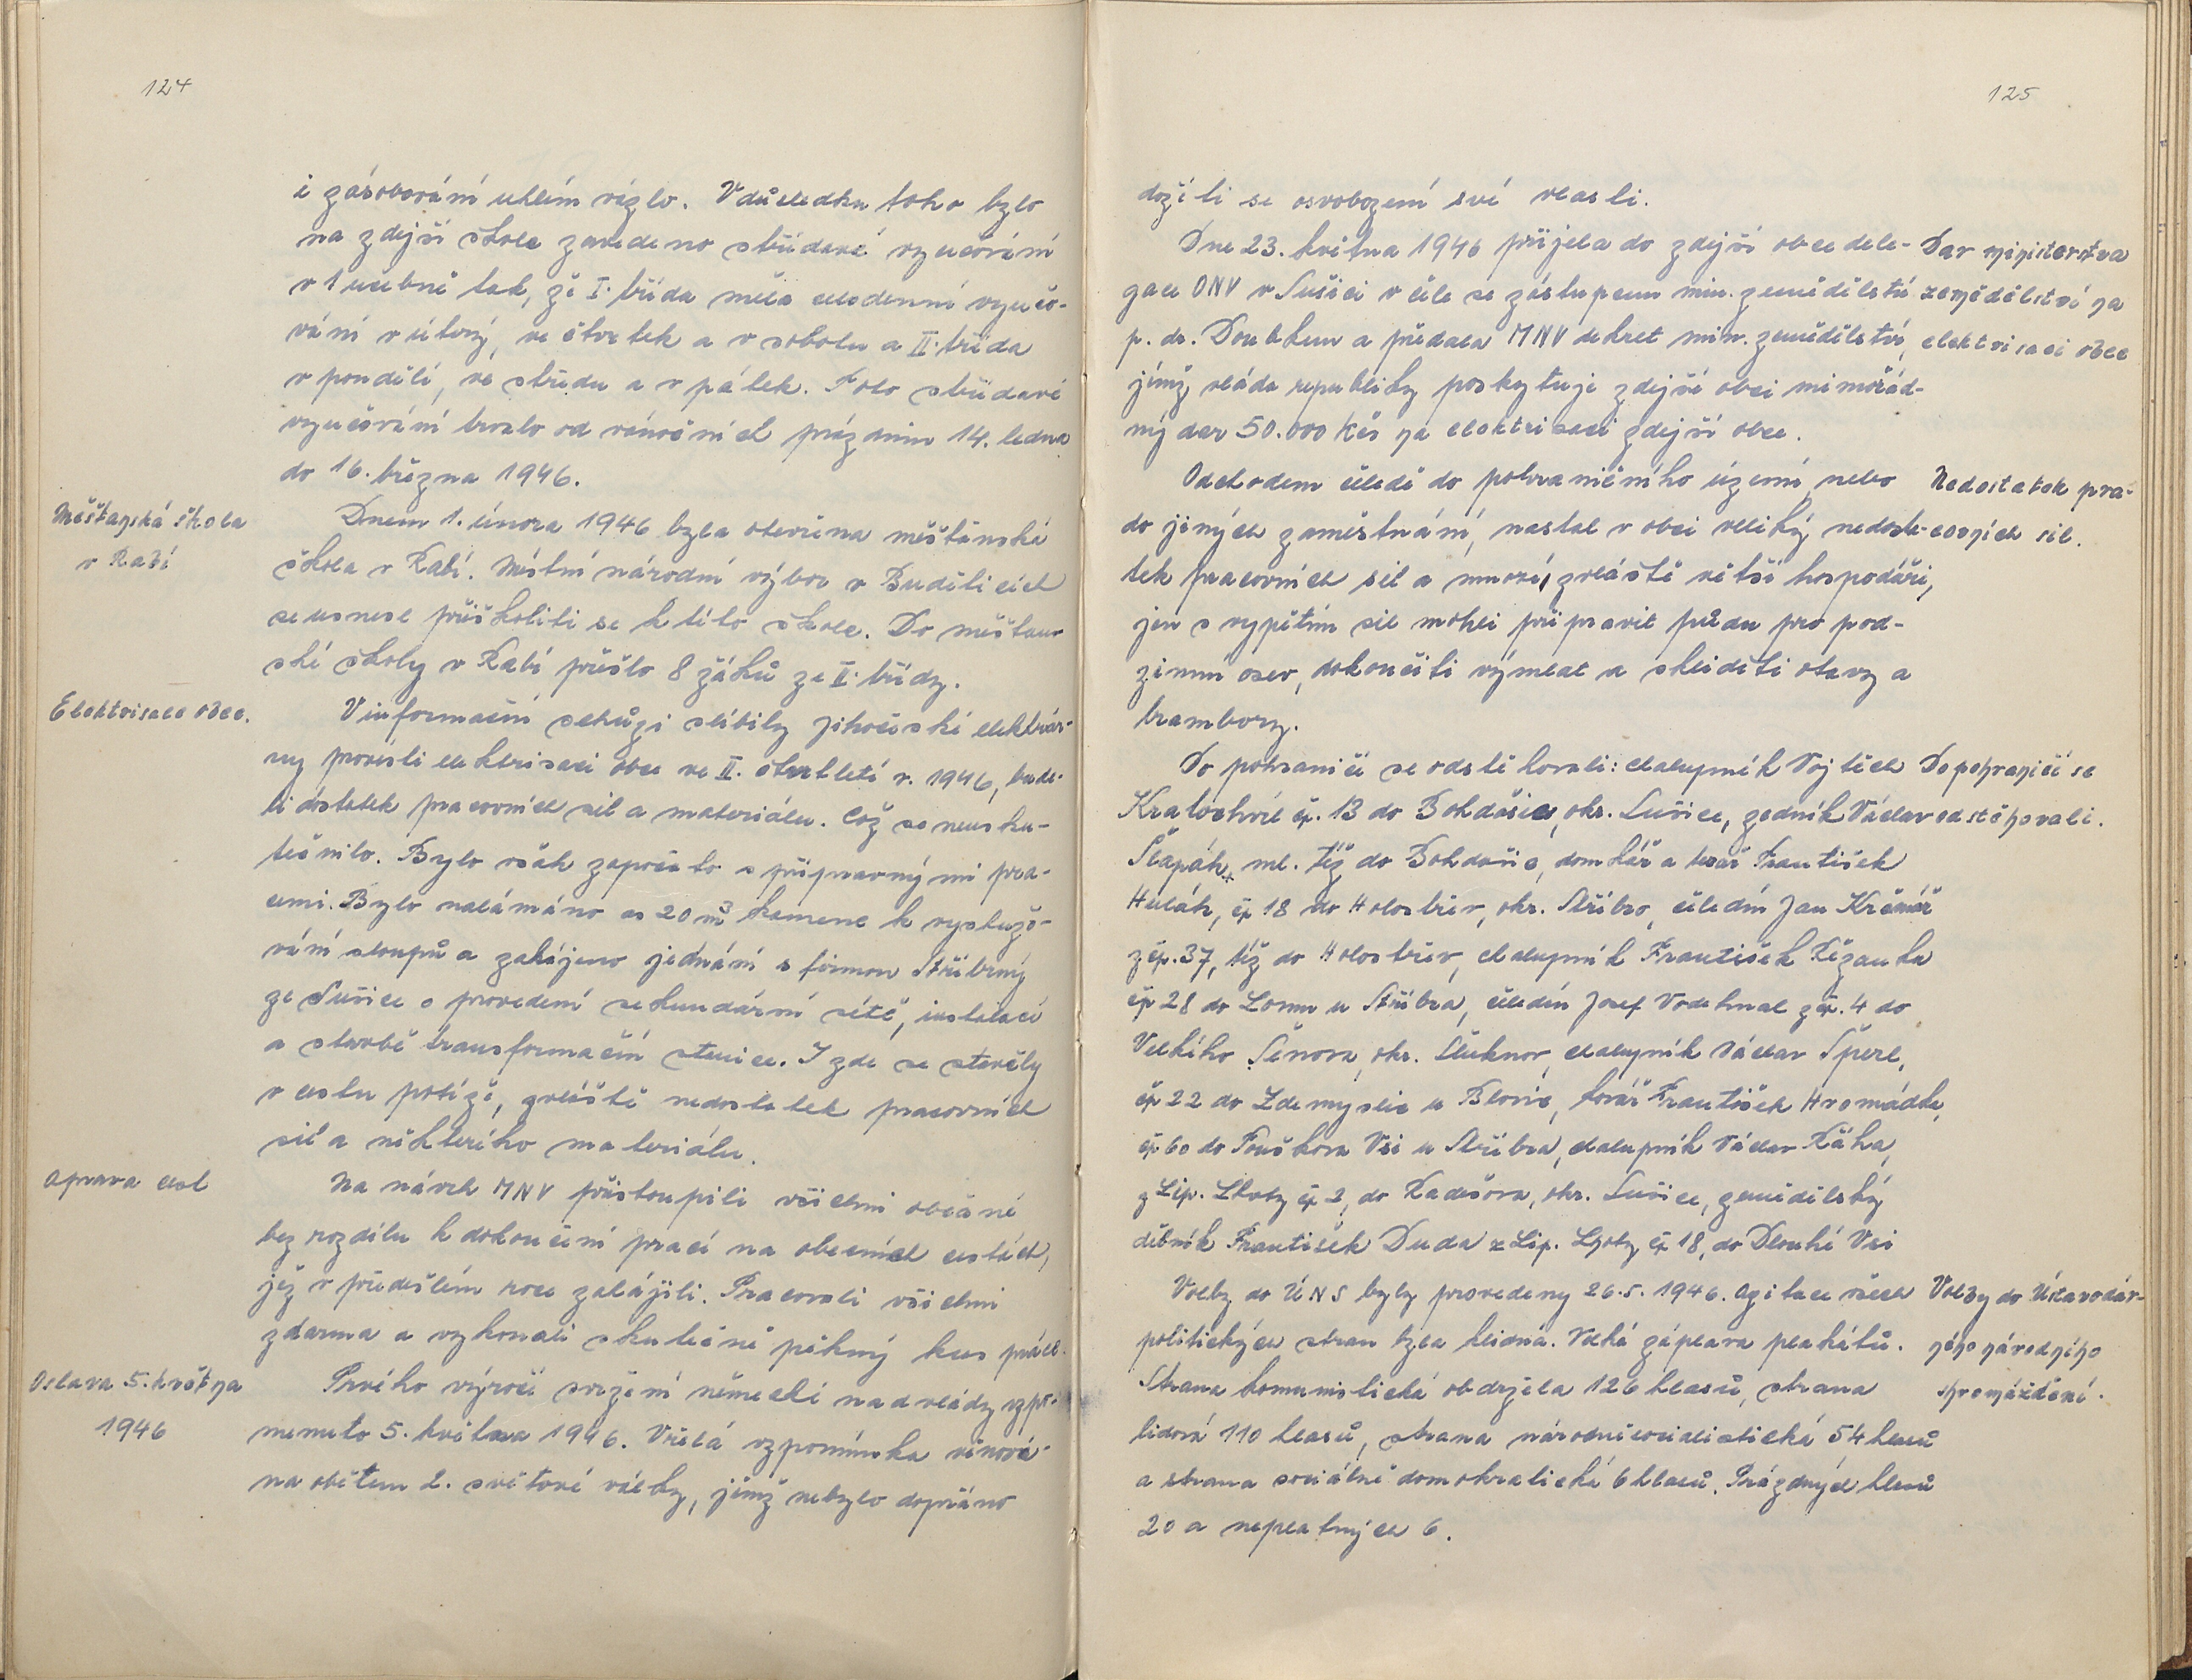 124
i zásobování uhlím vázlo. V důsledku toho bylo
na zdejší škole zavedeno střídavé vyučování
v 1 učebně tak, že I. třída měla celodenní vyučo-
vání v úterý, ve čtvrtek a v sobotu a II. třída
v pondělí, ve středu a v pátek. Toto střídavé
vyučování trvalo od vánočních prázdnin 14. ledna
do 16. března 1946.
Měšťanská škola
v Rabí
Dnem 1. února 1946 byla otevřena měšťanská
škola v Rabí. Místní národní výbor v Budětících
se usnesl přiškoliti se k této škole. Do měšťan
ské školy v Rabí přešlo 8 žáků ze II. třídy.
Elektrisace obce.
V informační schůzi slíbily Jihočeské elektrár-
ny provésti elektrisaci obce ve II. čtvrtletí r. 1946, bude-
li dostatek pracovních sil a materiálu. Což se neusku-
tečnilo. Bylo však započato s přípravnými pra-
cemi. Bylo nalámáno as 20 m³ kamene k vyztužo-
vání sloupů a zahájeno jednání s firmou Stříbrný
ze Sušice o provedení sekundární sítě, instalací
a stavbě transformační stanice. I zde se stavěly
v cestu potíže, zvláště nedostatek pracovních
sil a některého materiálu.
Oprava cest
Na návrh MNV přistoupili všichni občané
bez rozdílu k dokončení prací na obecních cestách,
jež v předešlém roce zahájili. Pracovali všichni
zdarma a vykonali skutečně pěkný kus práce.
Oslava 5. května
1946
Prvého výročí svržení německé nadvlády vzpo-
menuto 5. května 1946. Vřelá vzpomínka věnová-
na obětem 2. světové války, jimž nebylo dopřáno
125
dožíti se osvobození své vlasti.
Dne 23. května 1946 přijela do zdejší obce dele-
gace ONV v Sušici v čele se zástupcem min. zemědělství
p. dr. Doubkem a předala MNV dekret min. zemědělství,
jímž vláda republiky poskytuje zdejší obci mimořád-
ný dar 50.000 Kčs na elektrisaci zdejší obce.
Dar ministerstva
zemědělství na
elektrisaci obce
Odchodem čeledě do pohraničního území, nebo
do jiných zaměstnání, nastal v obci veliký nedosta-
tek pracovních sil a mnozí, zvláště větší hospodáři,
jen s vypětím sil mohli připravit půdu pro pod-
zimní osev, dokončiti výmlat a skliditi otavy a
brambory.
Nedostatek pra-
covních sil.
Do pohraničí se odstěhovali: chalupník Vojtěch
Kratochvíl čp. 13 do Bohdašic, okr. Sušice, zedník Václav
Šlapák, ml. též do Bohdašic, domkář a tesař František
Hulák, čp 18 do Holostřev, okr. Stříbro, čeledín Jan Krčmář
z čp. 37, též do Holostřev, chalupník František Řezanka
čp 28 do Lomu u Stříbra, čeledín Josef Vodehnal z čp. 4 do
Velkého Šenova, okr. Šluknov, chalupník Václav Šperl,
čp 22 do Zdemyslic u Blovic, kovář František Hromádka,
čp 60 do Touškova Vsi u Stříbra, chalupník Václav Káha,
z Lip. Lhoty čp 2, do Radešova, okr. Sušice, zemědělský
dělník František Duda z Lip. Lhoty čp 18, do Dlouhé Vsi
Do pohraničí se
odstěhovali.
Volby do ÚNS byly provedeny 26.5. 1946. Agitace všech
politických stran byla klidná. Velká záplava plakátů.
Strana komunistická obdržela 126 hlasů, strana
lidová 110 hlasů, strana národněsocialistická 54 hlasů
a strana sociálně demokratická 6 hlasů. Prázdných hlasů
20 a neplatných 6.
Volby do Ústavodár-
ného národního
shromáždění.